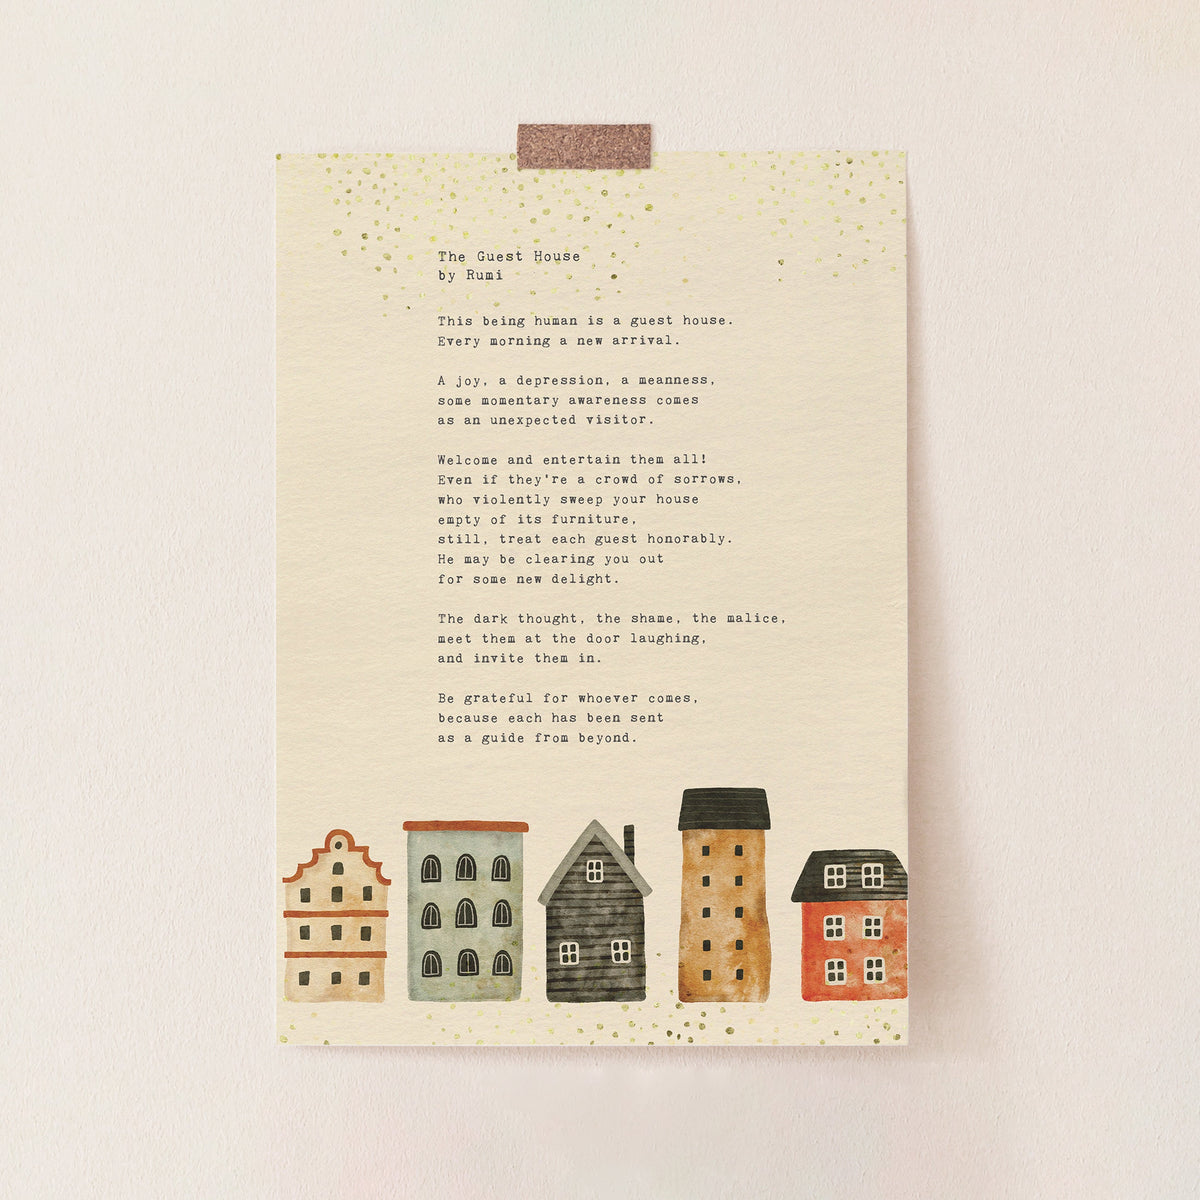 The Guest House
by Rumi
This being human is a guest house.
Every morning a new arrival.
A joy, a depression, a meanness,
some momentary awareness comes
as an unexpected visitor.
Welcome and entertain them all!
Even if they're a crowd of sorrows,
who violently sweep your house
empty of its furniture,
still, treat each guest honorably.
He may be clearing you out
for some new delight.
The dark thought, the shame, the malice,
meet them at the door laughing,
and invite them in.
Be grateful for whoever comes,
because each has been sent
as a guide from beyond.